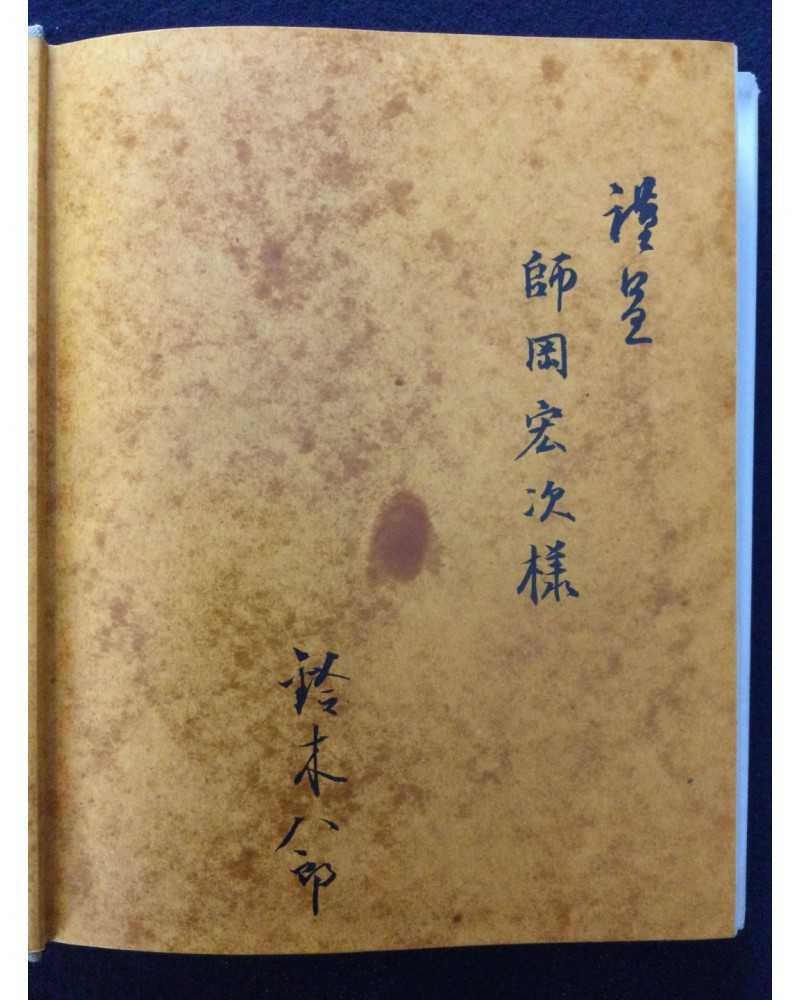 謹呈
師岡宏次様
鈴木八郎